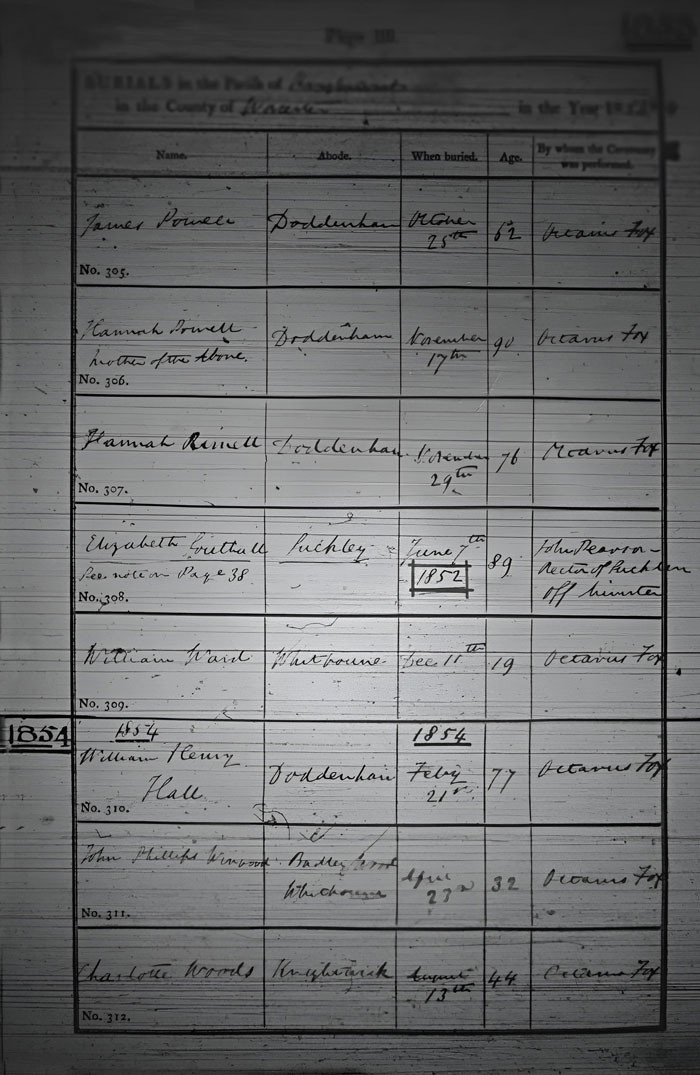 Page 38.
1853
BURIALS in the Parish of
in the County of Worcester in the Year 18
Name. Abode. When buried. Age. By whom the Ceremony was performed.
James Powell Doddenham October 25th 62 Octavius Fox
No. 305.
Hannah Powell Doddenham November 17th 90 Octavius Fox
Mother of the Above.
No. 306.
Hannah Doddenham November 29th 76 Octavius Fox
No. 307.
Elizabeth Southall Suckley June 7th 89 John Pearson
See note on Page 38 1852 Rector of Suckley
No. 308. Off Minister
William Ward Whitbourne Dec 11th 19 Octavius Fox
No. 309.
1854 1854 1854
William Henry Doddenham Feby 77 Octavius Fox
Hall 21st
No. 310.
John Phillips Winwood Badley Wood April 32 Octavius Fox
Whitbourne 23rd
No. 311.
Charlotte Woods Knightwick August 13th 44 Octavius Fox
No. 312.